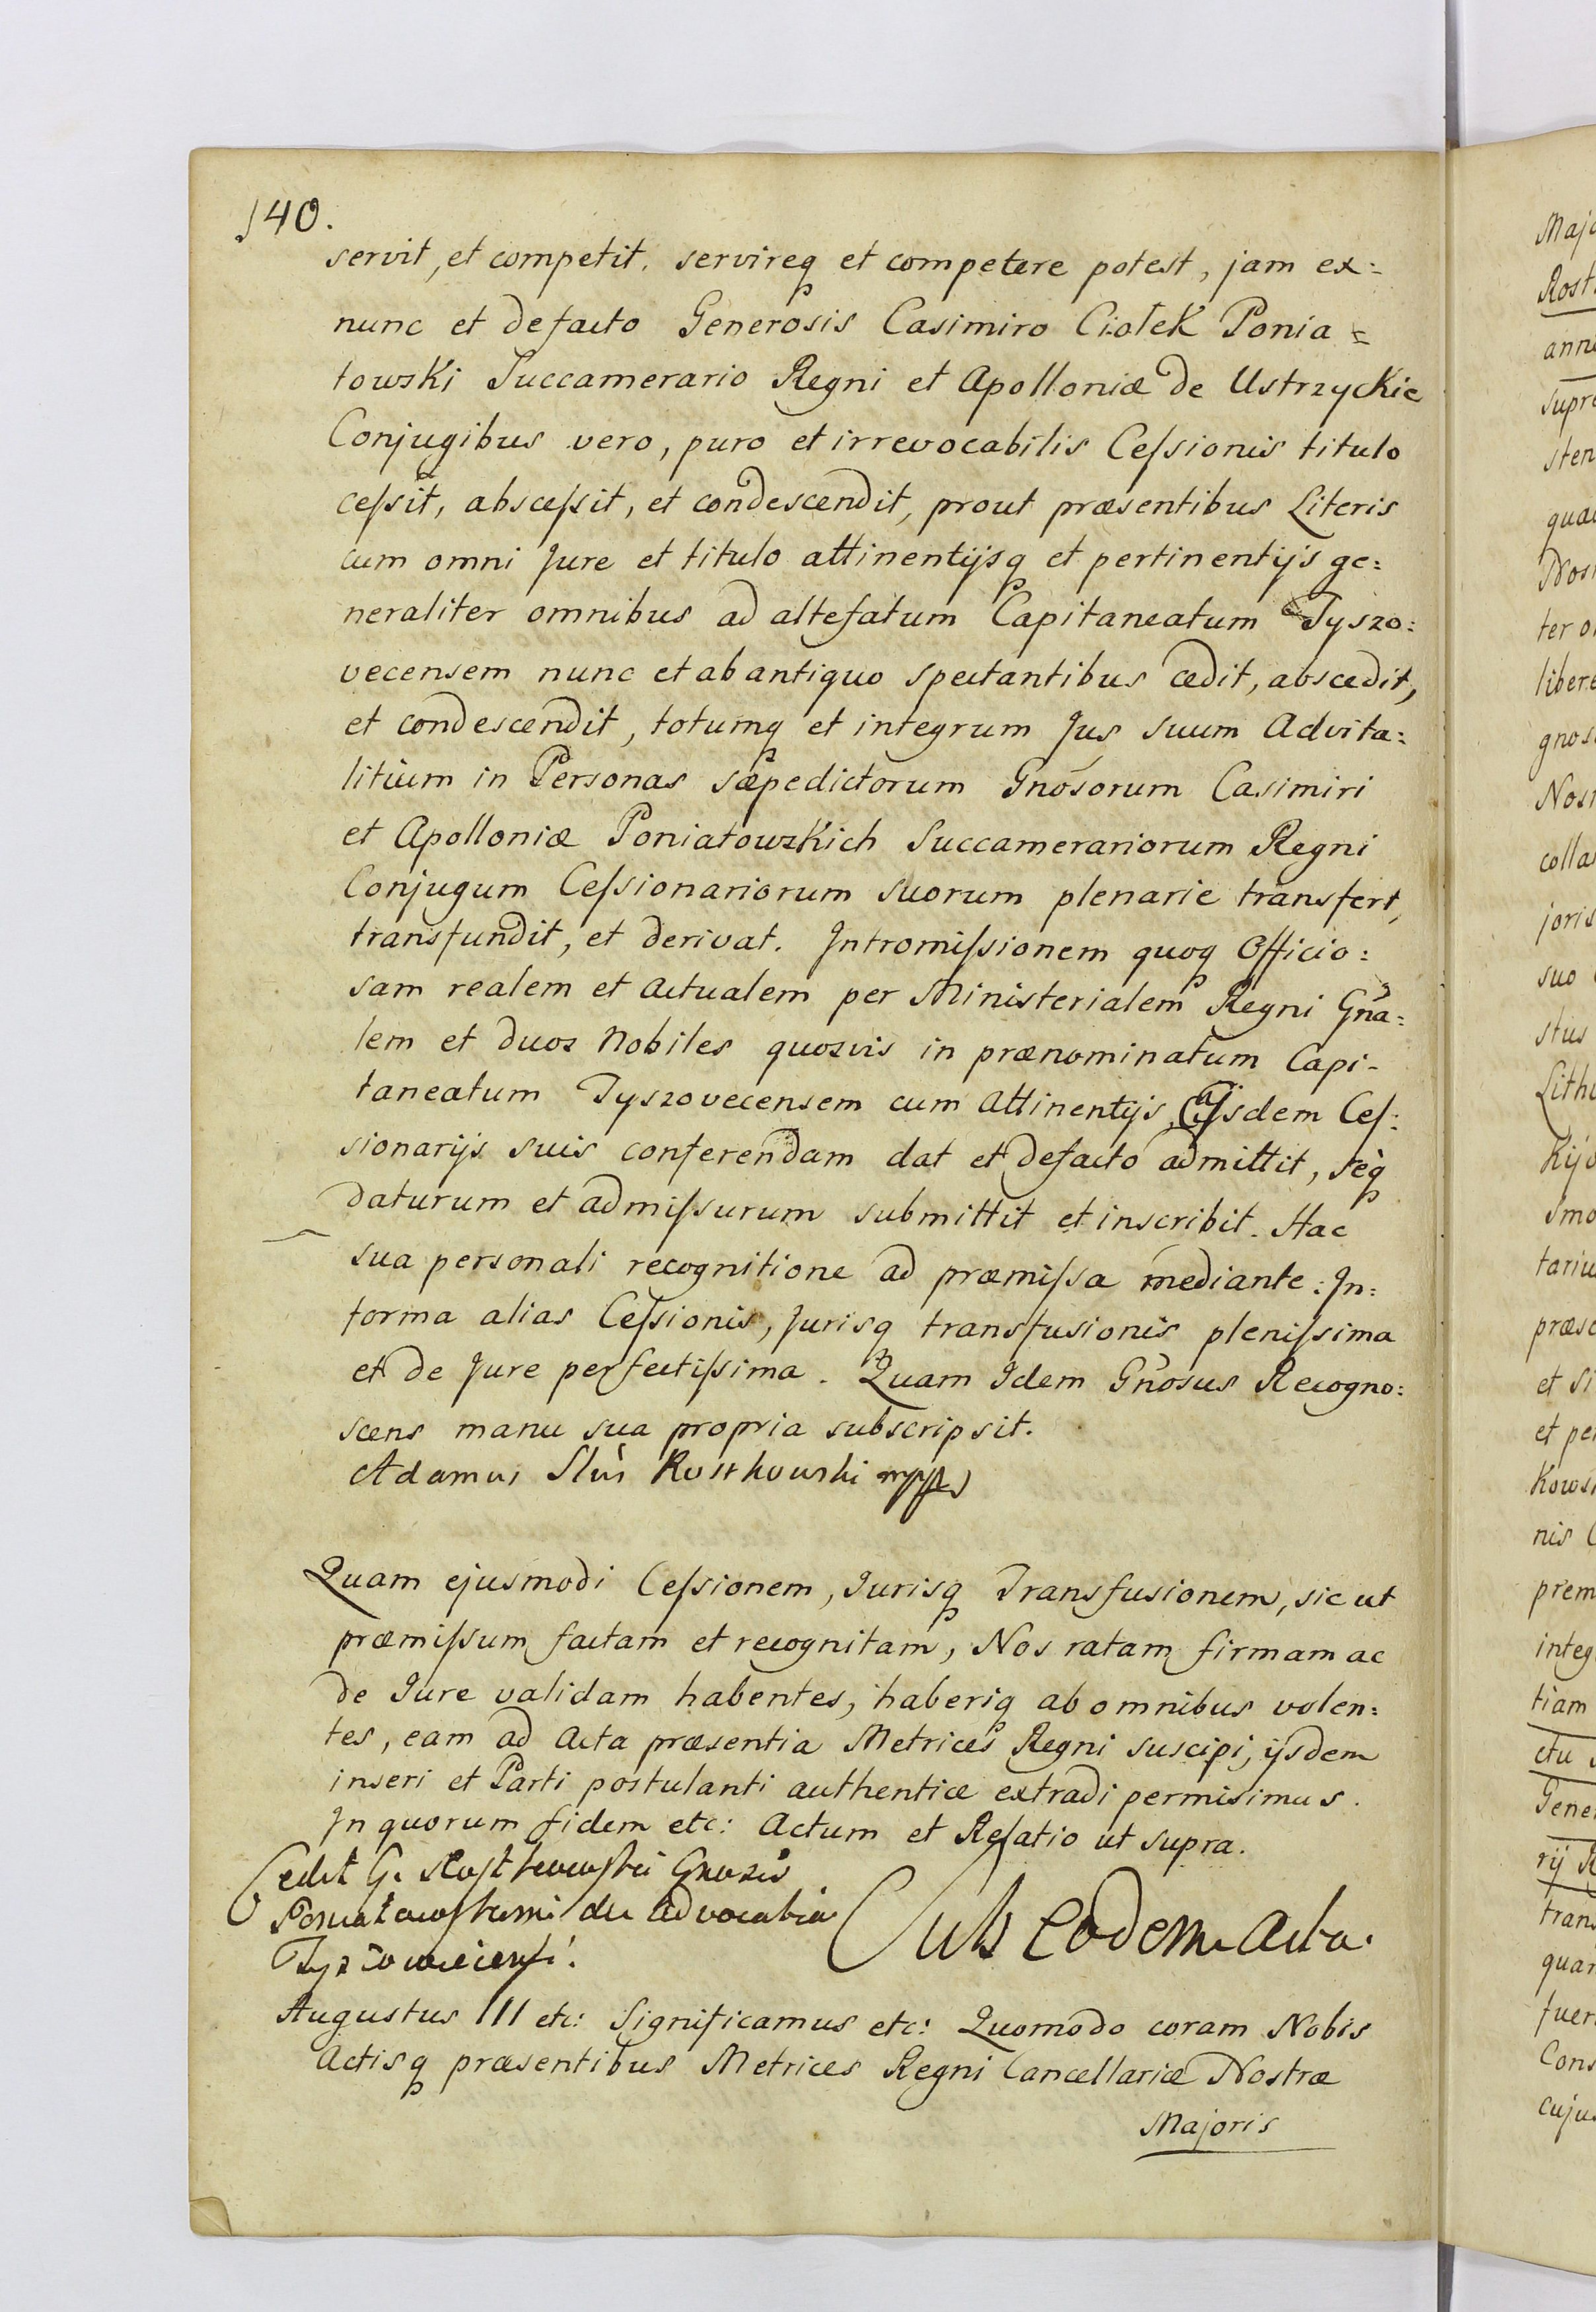 140.
servit, et competit. servireq et competere potest, jam ex:
nunc et defacto Generosis Casimiro Ciołek Ponia=
towski Succamerario Regni et Apolloniæ de Ustrzyckie
Conjugibus vero, puro et irrevocabilis Ceſsionis titulo
ceſsit, absceſsit, et condescendit, prout præsentibus Literis
cum omni Jure et titulo attinentijsq et pertinentijs ge:
neraliter omnibus ad altefatum Capitaneatum Tyszo:
vecensem nunc et ab antiquo spectantibus cedit, abscedit,
et condescendit, totumq et integrum Jus suum Advita:
litium in Personas sæpedictorum Gnosorum Casimiri
et Apolloniæ Poniatowskich Succamerariorum Regni
Conjugum Ceſsionariorum suorum plenarie transfert,
transfundit, et derivat. Intromiſsionem quoq Officio:
sam realem et actualem per Ministerialem Regni Gña:
lem et duos Nobiles quosvis in prænominatum Capi-
taneatum Tyszovecensem cum Attinentijs, ijsdem Ceſ:
sionarijs suis conferendam dat et defacto admittit, seq
daturum et admiſsurum submittit et inscribit. Hac
sua personali recognitione ad præmiſsa mediante: In:
forma alias Ceſsionis, Jurisq transfusionis pleniſsima
et de Jure perfectiſsima. Quam Idem Gñosus Recogno:
scens manu sua propria subscripsit.
Adamus Slus Rostkowski mpp
Quam ejusmodi Ceſsionem, Jurisq Transfusionem, sic ut
præmiſsum factam et recognitam, Nos ratam firmam ac
de Jure validam habentes, haberiq ab omnibus volen:
tes, eam ad Acta præsentia Metrices Regni suscipi, ijsdem
inseri et Parti postulanti authentice extradi permisimus.
In quorum fidem etc: Actum et Relatio ut supra.
Cedit G. Rostkowski Gnosis
Poniatowskim de advocatia
Tyszowiecensi.
Sub eodem Actu.
Augustus III etc: Significamus etc: Quomodo coram Nobis
Actisq præsentibus Metrices Regni Cancellariæ Nostræ
Majoris